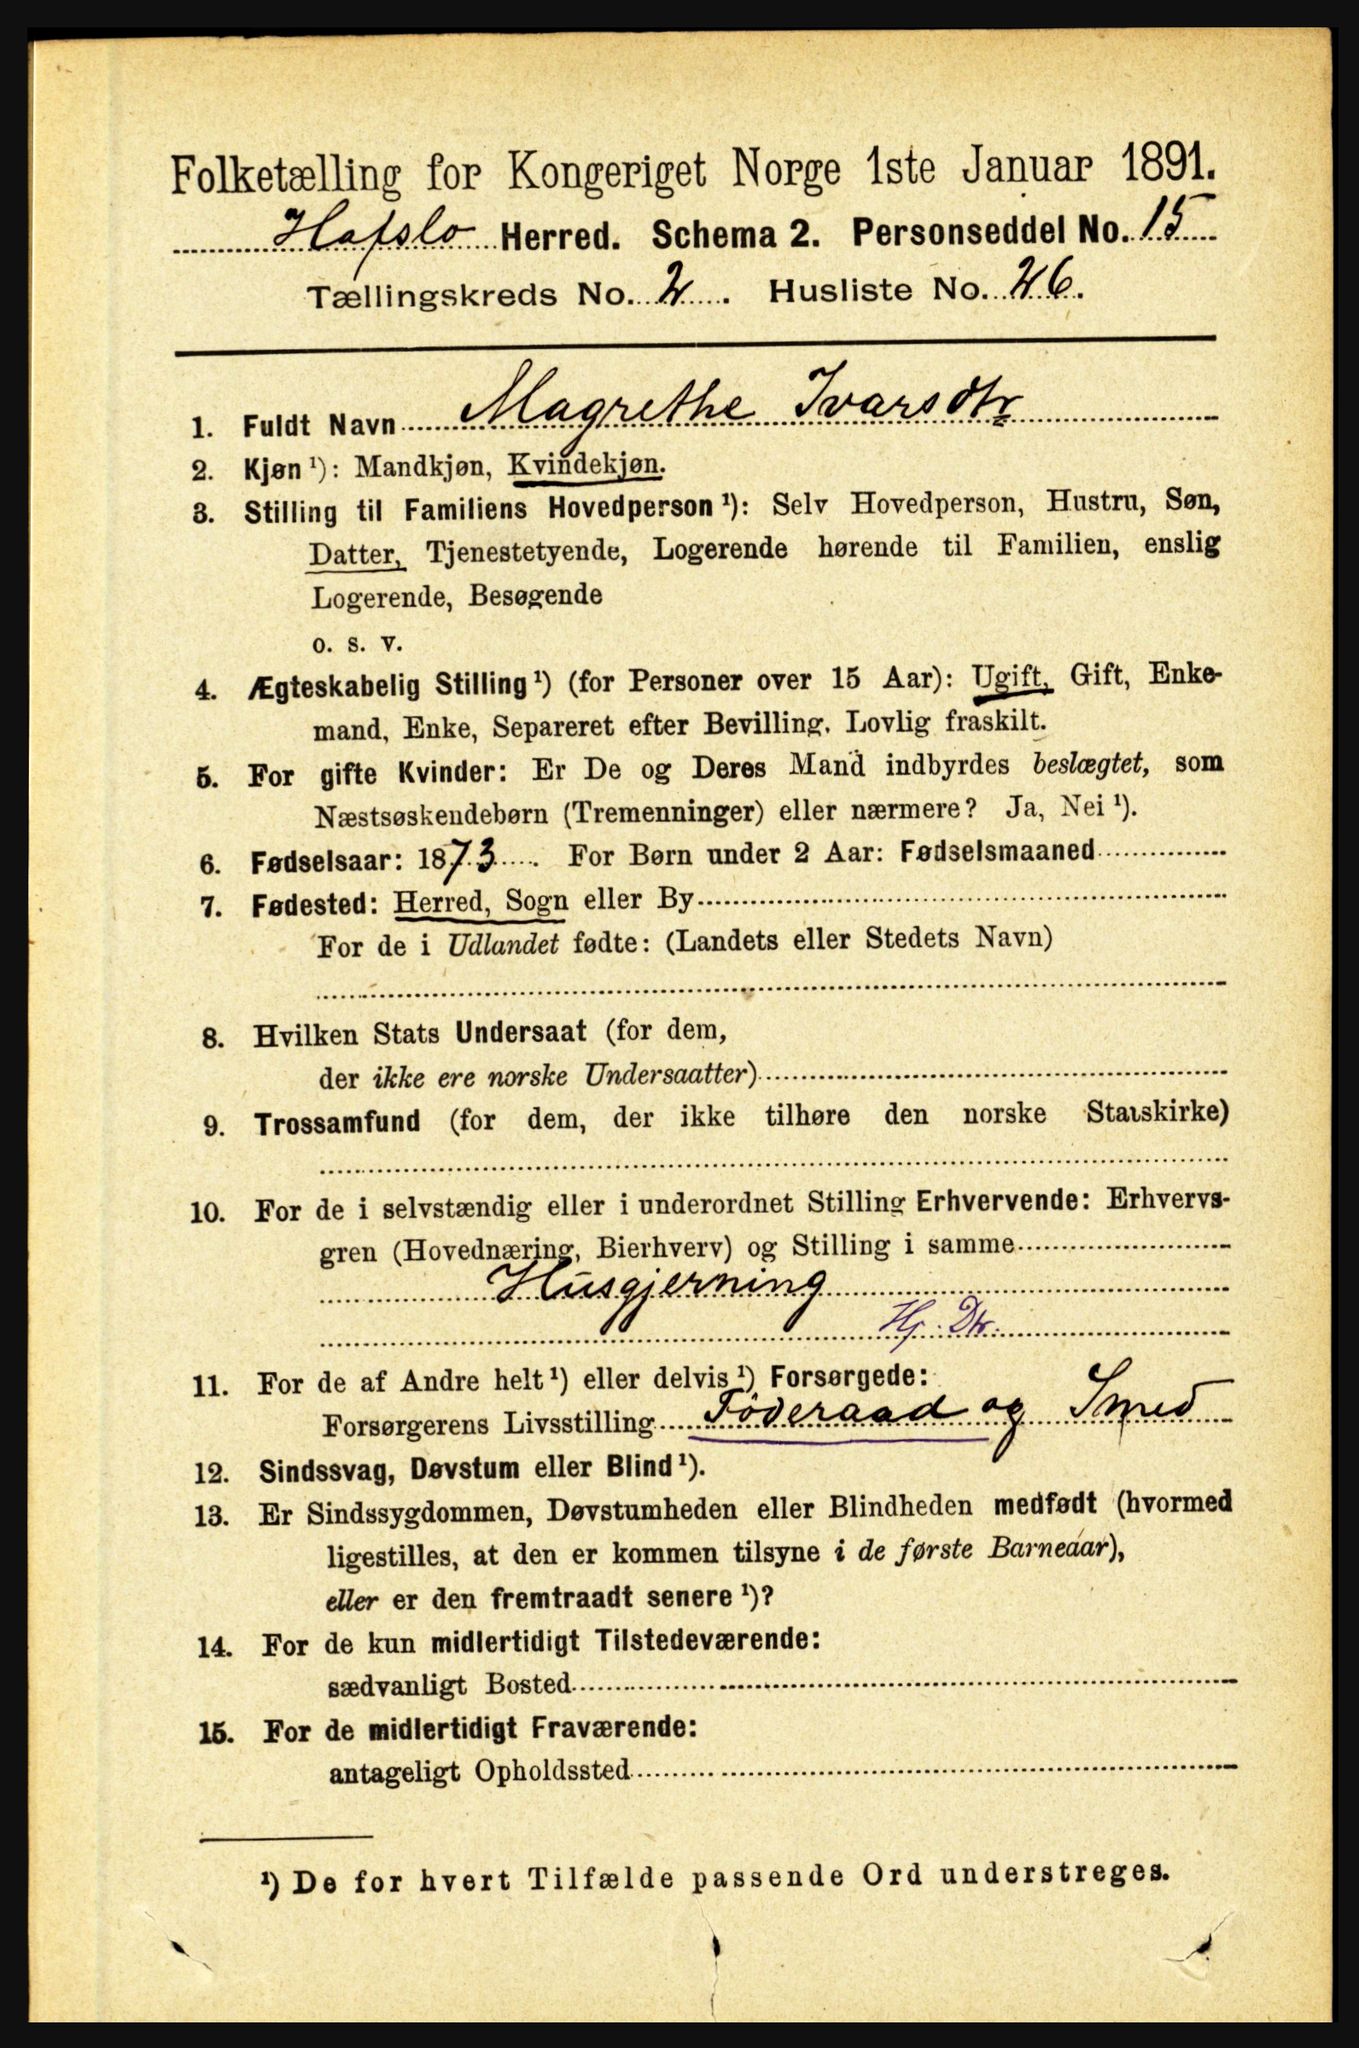 Folketælling for Kongeriget Norge 1ste Januar 1891.
Hafslo Herred. Schema 2. Personseddel No. 15
Tællingskreds No. 2. Husliste No. 26.
1. Fuldt Navn Magrethe Ivarsdtr
2. Kjøn ¹): Mandkjøn, Kvindekjøn.
3. Stilling til Familiens Hovedperson ¹): Selv Hovedperson, Hustru, Søn,
Datter, Tjenestetyende, Logerende hørende til Familien, enslig
Logerende, Besøgende
o. s. v.
4. Ægteskabelig Stilling ¹) (for Personer over 15 Aar): Ugift, Gift, Enke-
mand, Enke, Separeret efter Bevilling. Lovlig fraskilt.
5. For gifte Kvinder: Er De og Deres Mand indbyrdes beslægtet, som
Næstsøskendebørn (Tremenninger) eller nærmere? Ja, Nei ¹).
6. Fødselsaar: 1873. For Børn under 2 Aar: Fødselsmaaned
7. Fødested: Herred, Sogn eller By
For de i Udlandet fødte: (Landets eller Stedets Navn)
8. Hvilken Stats Undersaat (for dem,
der ikke ere norske Undersaatter)
9. Trossamfund (for dem, der ikke tilhøre den norske Statskirke)
10. For de i selvstændig eller i underordnet Stilling Erhvervende: Erhvervs-
gren (Hovednæring, Bierhverv) og Stilling i samme
Husgjerning
Hj. Dtr.
11. For de af Andre helt ¹) eller delvis ¹) Forsørgede:
Forsørgerens Livsstilling Föderaad og Smed
12. Sindssvag, Døvstum eller Blind ¹).
13. Er Sindssygdommen, Døvstumheden eller Blindheden medfødt (hvormed
ligestilles, at den er kommen tilsyne i de første Barneaar),
eller er den fremtraadt senere ¹)?
14. For de kun midlertidigt Tilstedeværende:
sædvanligt Bosted
15. For de midlertidigt Fraværende:
antageligt Opholdssted
¹) De for hvert Tilfælde passende Ord understreges.